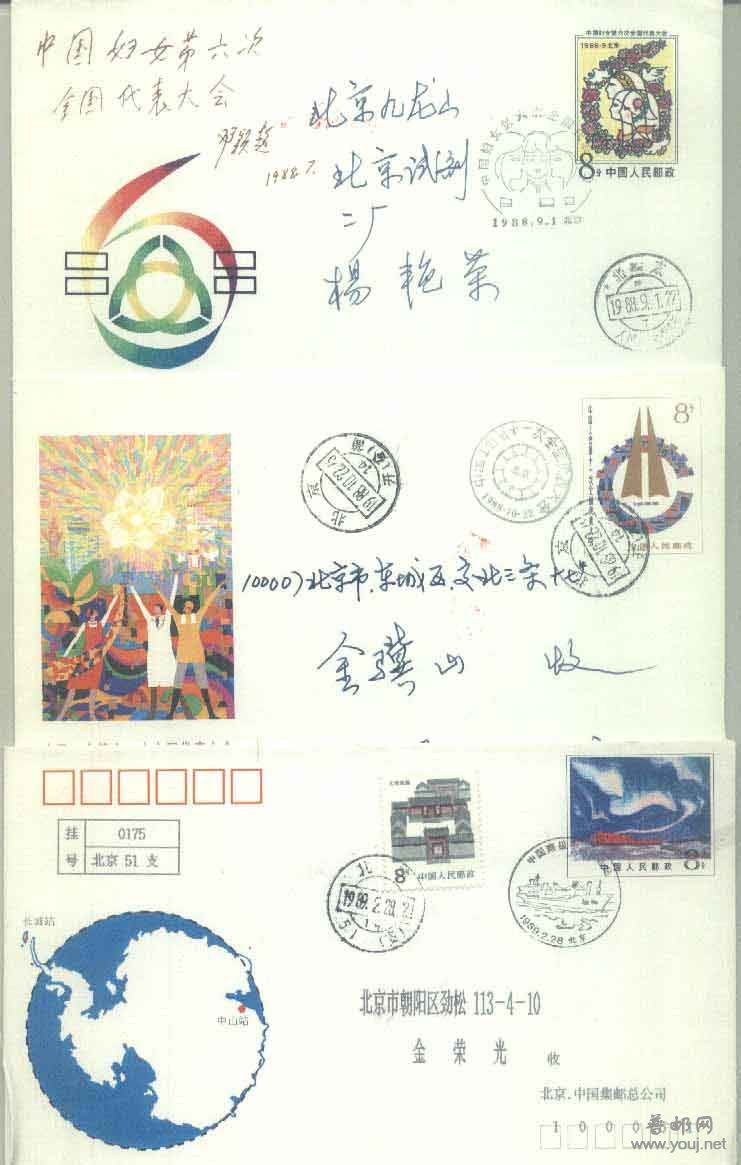 中国妇女第六次
全国代表大会
邓颖超
1988.7.
中国妇女第六次全国代表大会
1988·9北京
8分 中国人民邮政
北京九龙山
北京试剂
二厂
楊艳荣
1988.9.1 北京
北京
1988.9.1.22
8分
中国人民邮政
北京
1988.10.22.
1988·10·22
北京市.东城区.交北三条十七号
金骥山 收
挂号
0175
北京 51 支
8分 中国人民邮政
中国人民邮政 8分
北
1989.2.28.
1989.2.28 北京
长城站
中山站
北京市朝阳区劲松 113-4-10
金荣光 收
北京.中国集邮总公司
普邮网
www.youj.net